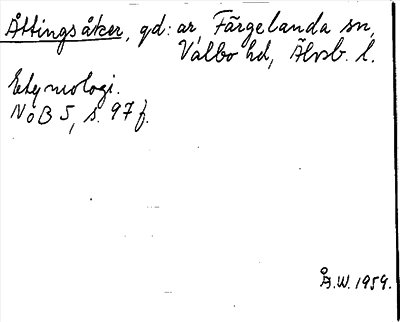 Åttingsåker, gd:ar, Färgelanda sn,
Valbo hd, Älvsb. l.
Etymologi.
NoB 5, s. 97 f.
Å.W. 1959.